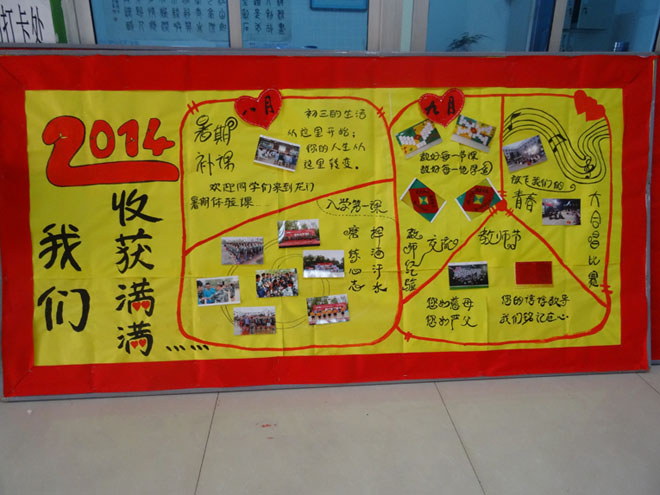 打卡处
2014
我们
收获满满……
八月
暑期
补课
初三的生活
从这里开始；
你的人生从
这里转变。
欢迎同学们来到龙门
暑期体验课…
入学第一课
磨练心志
挥洒汗水
九月
教好每一节课
放飞我们的
青春
大合唱比赛
教师
交流
教师节
您如慈母
您如严父
您的谆谆教导
我们铭记在心